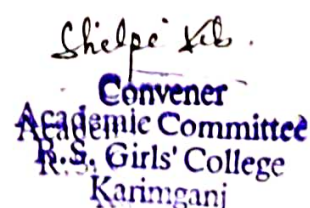 Convener
Academic Committee
R.S. Girls' College
Karimganj